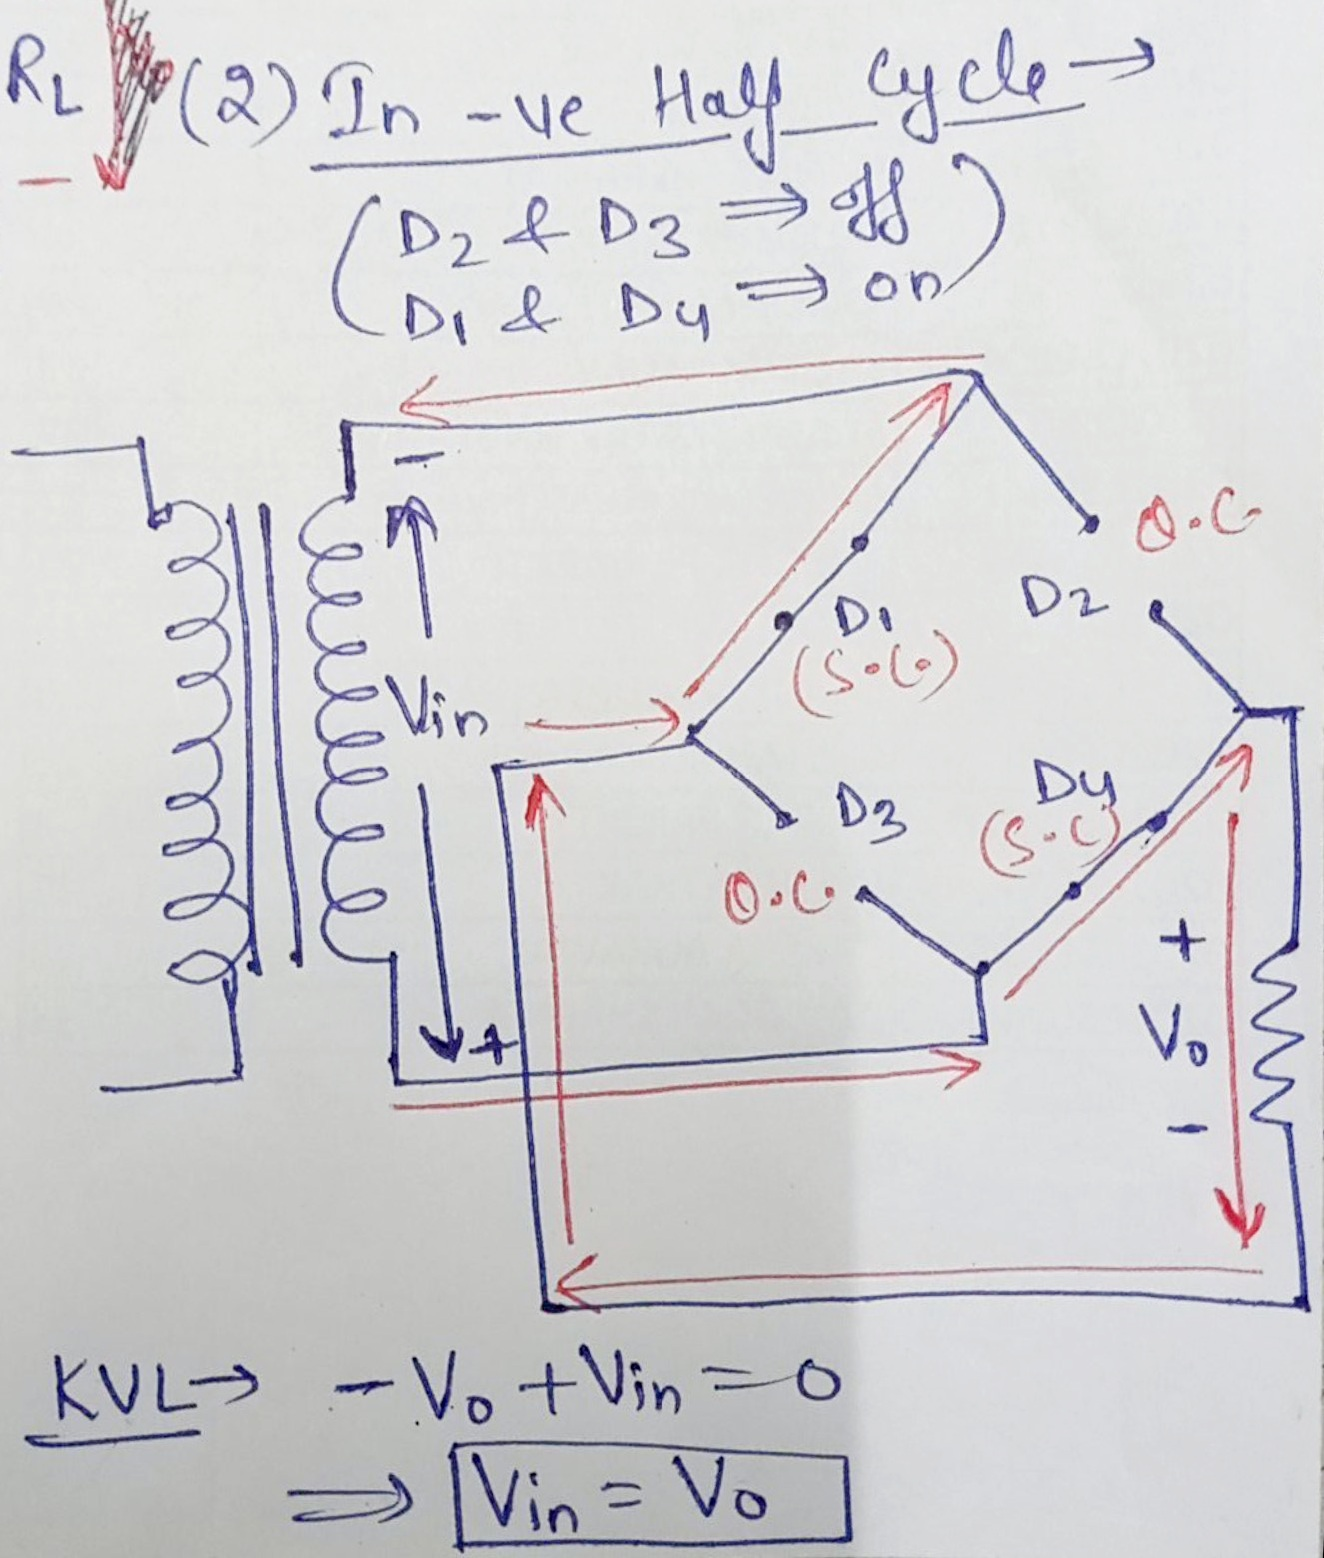 RL
(2) In -ve Half Cycle →
-
(D2 & D3 ⇒ off
D1 & D4 ⇒ on)
-
O.C.
D2
D1
(S.C.)
Vin
D4
(S.C)
D3
O.C.
+
Vo
-
+
KVL → -Vo + Vin = 0
⇒ Vin = Vo